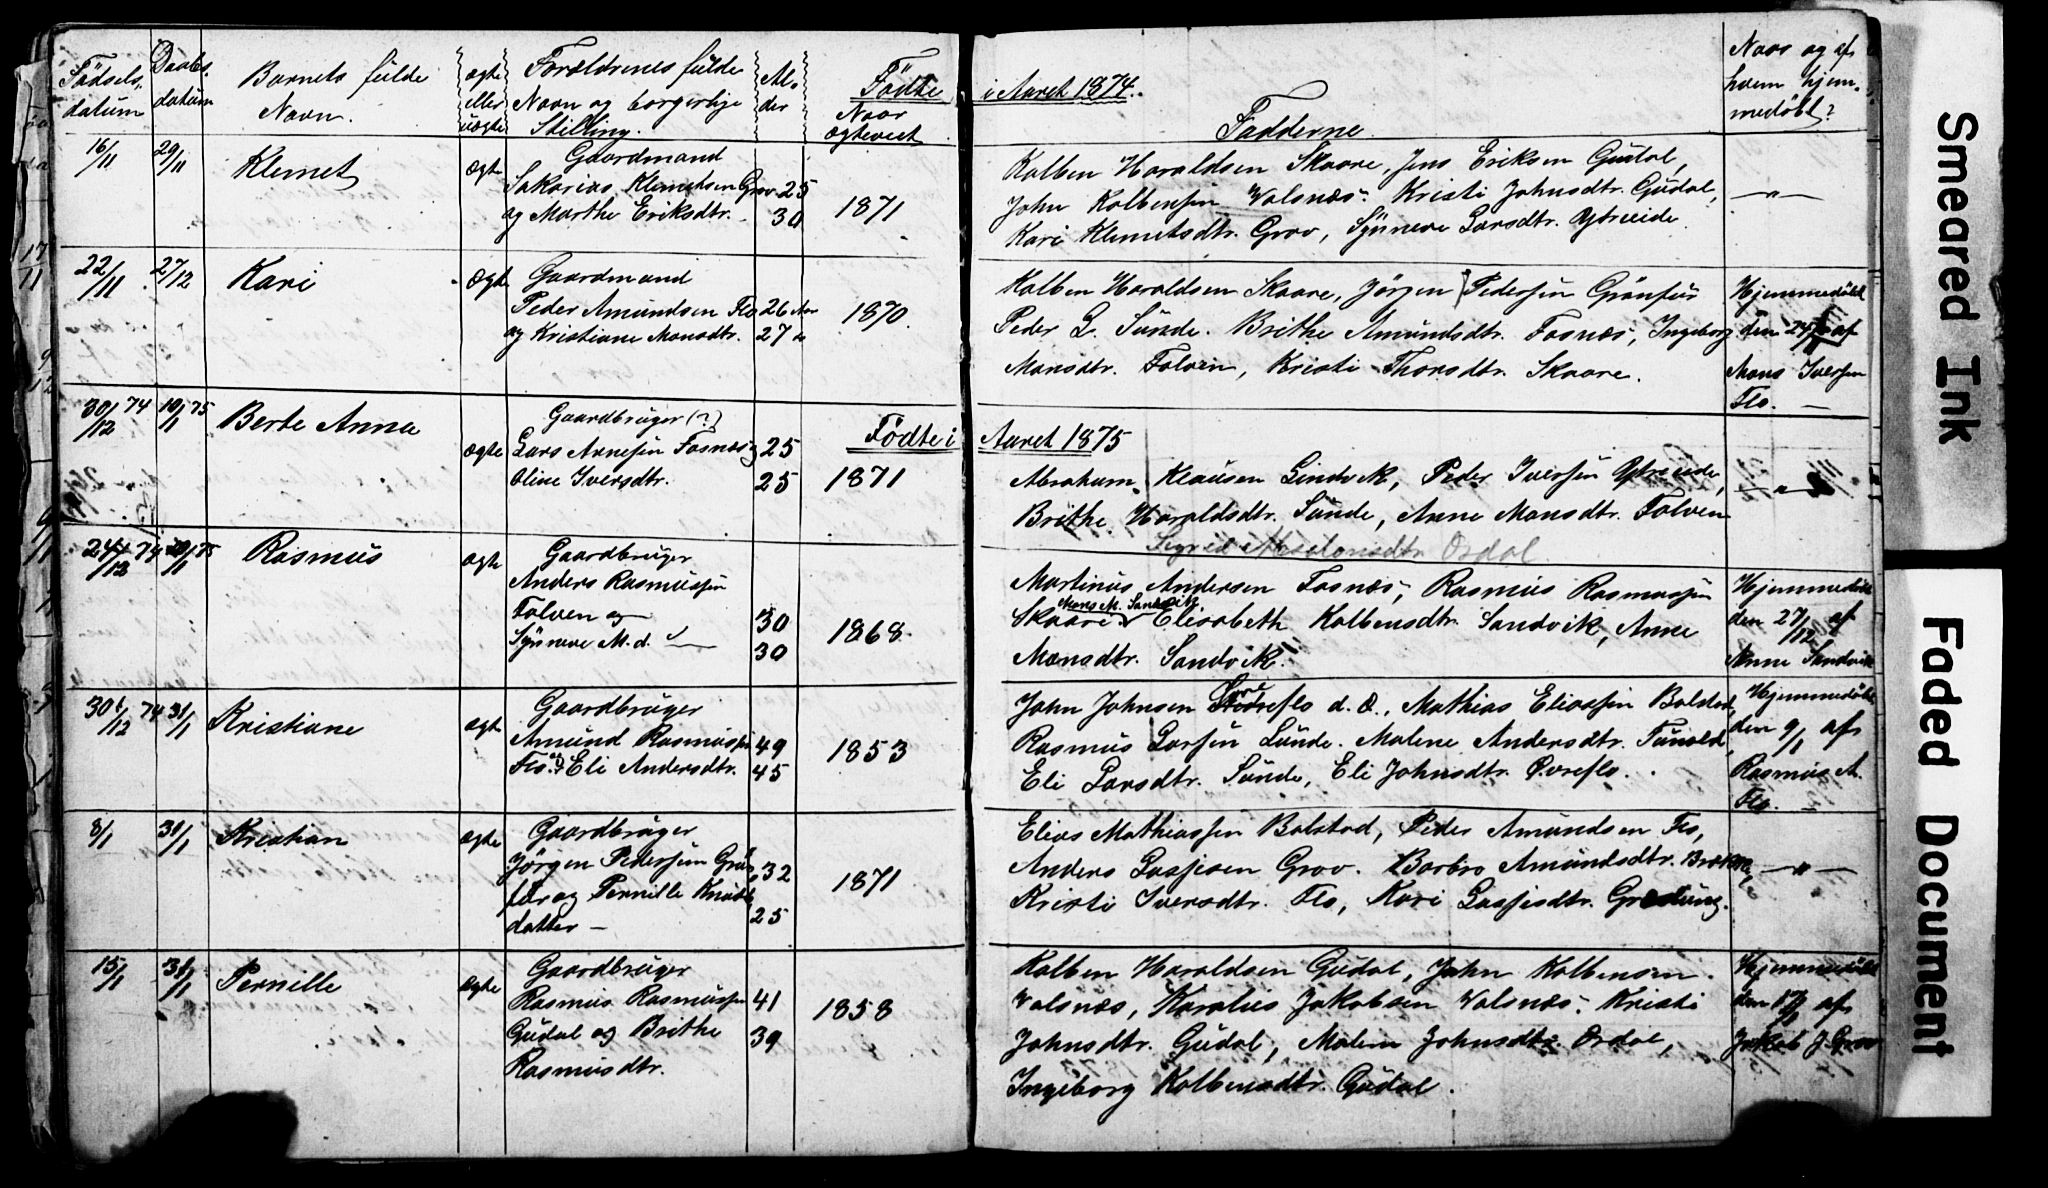 Fødsels-
datum
Daabs-
datum
Barnets fulde
Navn.
ægte
eller
uægte
Forældrenes fulde
Navn og borgerlige
Stilling.
Al-
der
Fødte
Naar
ægteviet
i Aaret 1874.
Fadderne
Naar og af
hvem hjem-
medøbt?
16/11 29/11 Klemet ægte
Gaardmand
Sakarias Klemetsen Grov 25
og Marthe Eriksdtr. 30
1871
Kolben Haraldsen Skaare, Jens Eriksen Gudal,
John Kolbensen Valsnæs. Kristi Johnsdtr. Gudal,
Kari Klemetsdtr. Grov, Synneve Larsdtr. Ytreeide.
— " —
22/11 27/12 Kari ægte
Gaardmand
Peder Amundsen Flo 26 Aar
og Kristiane Monsdtr. 27 "
1870.
Kolben Haraldsen Skaare, Jørgen Pedersen Grønfur
Peder L. Sunde. Brithe Amundsdtr. Fosnæs, Ingeborg
Monsdtr. Folven, Kristi Thorsdtr. Skaare.
Hjemmedøbt
den 24/11 af
Mons Iversen
Flo. —
30/12 74 10/1 75 Berte Anna ægte
Gaardbruger (?)
Lars Arnesen Fosnæs 25
Oline Iversdtr. 25
Fødte i
Aaret 1875
1871
Abraham Klausen Lindvik, Peder Iversen Ytreeide,
Brithe Haraldsdtr. Sunde, Anne Monsdtr. Folven
Sigrid Absalonsdtr Ordal
— " —
24/12 74 75 Rasmus ægte
Gaardbruger
Anders Rasmussen
Folven og 30
Synneve M. d. — 30
1868.
Martinus Andersen Fosnæs, Rasmus Rasmussen
Mons M. Sandvik
Skaare Elisabeth Kolbensdtr. Sandvik, Anne
Monsdtr. Sandvik.
Hjemmedøbt
den 27/12 af
Anne Sandvik
30/12 74 31/1 Kristiane ægte
Gaardbruger
Amund Rasmussen 49
Flo. og Eli Andersdtr. 45
1853
John Johnsen Øvreflo d. æ., Mathias Eliassen Bolstad,
Rasmus Larsen Sunde. Malene Andersdtr. Tunold,
Eli Larsdtr. Sunde, Eli Johnsdtr. Øvreflo.
Hjemmedøbt
den 9/1 af
Rasmus A.
Flo.
8/1 31/1 Kristian ægte
Gaardbruger
Jørgen Pedersen Grøn-
fur og Pernille Knuds- 32
datter — 25
1871
Elias Mathiassen Bolstad, Peder Amundsen Flo,
Anders Lassesen Grov. Barbro Amundsdtr.
Kristi Iversdtr. Flo, Kari Lassesdtr. Grodung.
— " —
15/1 31/1 Pernille ægte
Gaardbruger
Rasmus Rasmussen 41
Gudal og Brithe 39
Rasmusdtr.
1858
Kolben Haraldsen Gudal, John Kolbensen
Valsnæs, Karolius Jakobsen Valsnæs. Kristi
Johnsdtr. Gudal, Malene Johnsdtr. Ordal,
Ingeborg Kolbensdtr. Gudal.
Hjemmedøbt
den 17/1 af
Jakob J. Grov
Smeared Ink
Faded Document